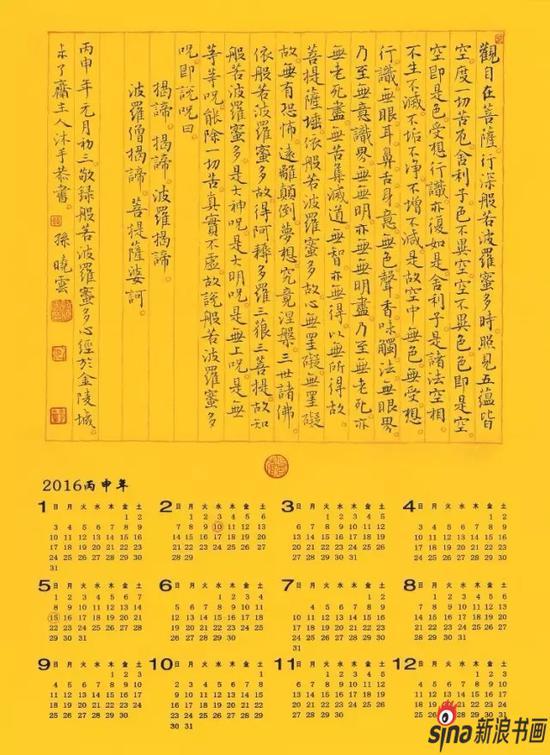 觀自在菩薩行深般若波羅蜜多時照見五蘊皆
空度一切苦厄舍利子色不異空空不異色色即是空
空即是色受想行識亦復如是舍利子是諸法空相
不生不滅不垢不淨不增不減是故空中無色無受想
行識無眼耳鼻舌身意無色聲香味觸法無眼界
乃至無意識界無無明亦無無明盡乃至無老死亦
無老死盡無苦集滅道無智亦無得以無所得故
菩提薩埵依般若波羅蜜多故心無罣礙無罣礙
故無有恐怖遠離顛倒夢想究竟涅槃三世諸佛
依般若波羅蜜多故得阿耨多羅三藐三菩提故知
般若波羅蜜多是大神呪是大明呪是無上呪是無
等等呪能除一切苦真實不虛故說般若波羅蜜多
呪即說呪曰
揭諦 揭諦 波羅揭諦
波羅僧揭諦 菩提薩婆訶
丙申年元月初三敬録般若波羅蜜多心經於金陵城
了齋主人沐手恭書 孫曉雲
2016丙申年
1 日 月 火 水 木 金 土
1 2
3 4 5 6 7 8 9
10 11 12 13 14 15 16
17 18 19 20 21 22 23
24 25 26 27 28 29 30
31
2 日 月 火 水 木 金 土
1 2 3 4 5 6
7 8 9 10 11 12 13
14 15 16 17 18 19 20
21 22 23 24 25 26 27
28 29
3 日 月 火 水 木 金 土
1 2 3 4 5
6 7 8 9 10 11 12
13 14 15 16 17 18 19
20 21 22 23 24 25 26
27 28 29 30 31
4 日 月 火 水 木 金 土
1 2
3 4 5 6 7 8 9
10 11 12 13 14 15 16
17 18 19 20 21 22 23
24 25 26 27 28 29 30
5 日 月 火 水 木 金 土
1 2 3 4 5 6 7
8 9 10 11 12 13 14
15 16 17 18 19 20 21
22 23 24 25 26 27 28
29 30 31
6 日 月 火 水 木 金 土
1 2 3 4
5 6 7 8 9 10 11
12 13 14 15 16 17 18
19 20 21 22 23 24 25
26 27 28 29 30
7 日 月 火 水 木 金 土
1 2
3 4 5 6 7 8 9
10 11 12 13 14 15 16
17 18 19 20 21 22 23
24 25 26 27 28 29 30
31
8 日 月 火 水 木 金 土
1 2 3 4 5 6
7 8 9 10 11 12 13
14 15 16 17 18 19 20
21 22 23 24 25 26 27
28 29 30 31
9 日 月 火 水 木 金 土
1 2 3
4 5 6 7 8 9 10
11 12 13 14 15 16 17
18 19 20 21 22 23 24
25 26 27 28 29 30
10 日 月 火 水 木 金 土
1
2 3 4 5 6 7 8
9 10 11 12 13 14 15
16 17 18 19 20 21 22
23 24 25 26 27 28 29
30 31
11 日 月 火 水 木 金 土
1 2 3 4 5
6 7 8 9 10 11 12
13 14 15 16 17 18 19
20 21 22 23 24 25 26
27 28 29 30
12 日 月 火 水 木 金 土
1 2 3
4 5 6 7 8 9 10
11 12 13
18 19 20
25 26 27
sina 新浪书画